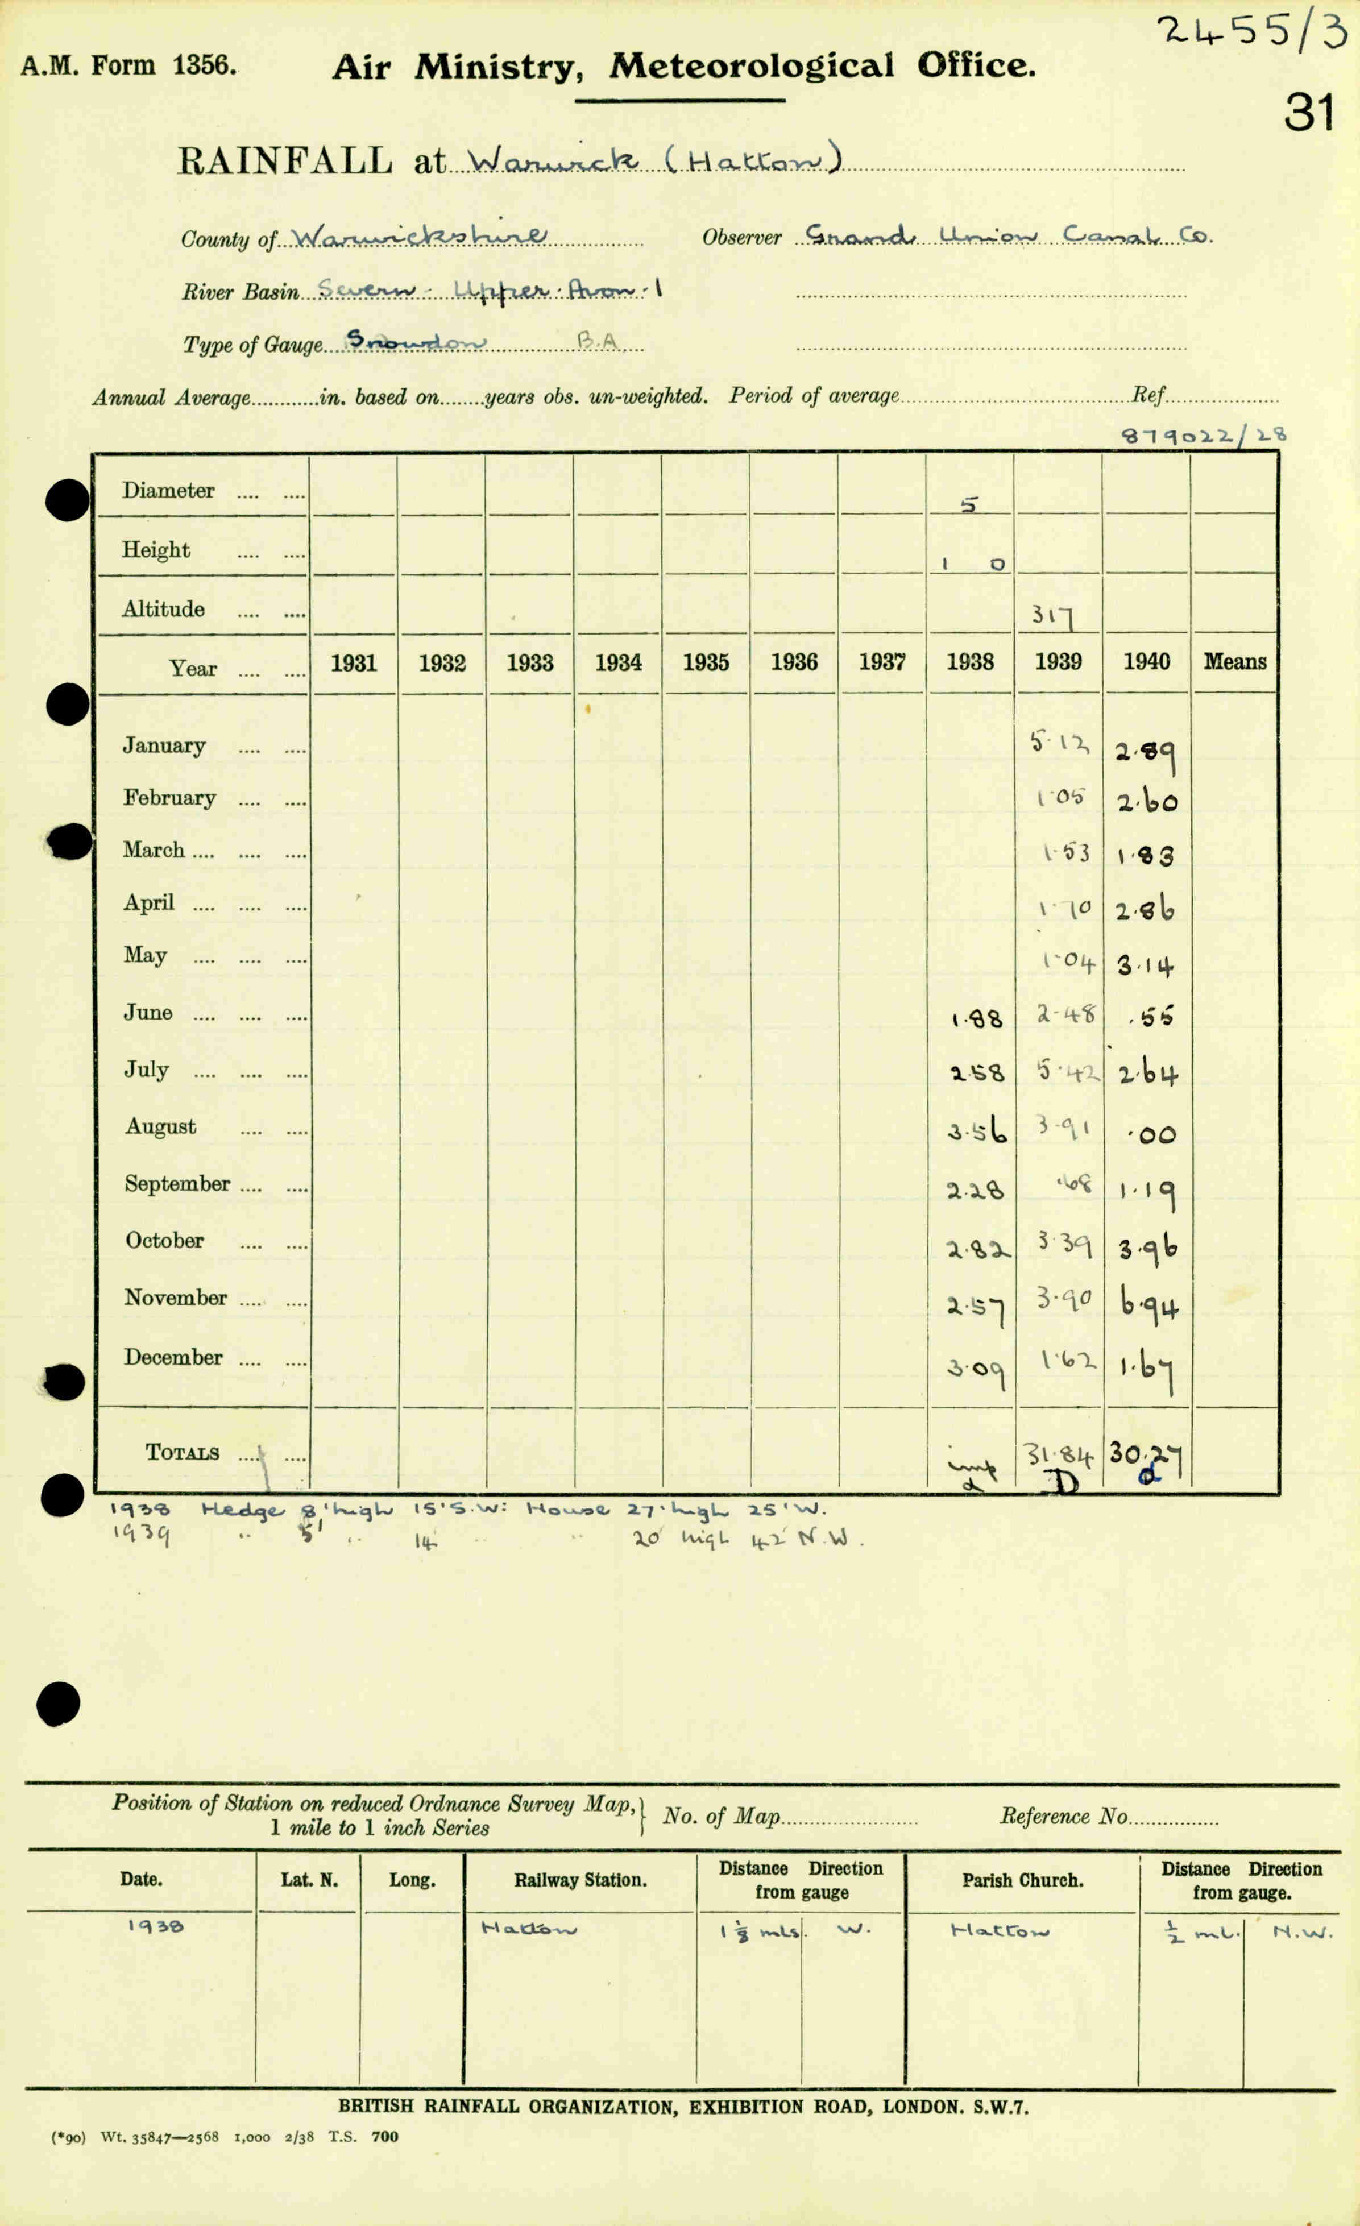 2455/3
A.M. Form 1356. Air Ministry, Meteorological Office.
31
RAINFALL at Warwick (Hatton)
County of Warwickshire Observer Grand Union Canal Co.
River Basin Severn - Upper Avon - 1
Type of Gauge Snowdon B.A.
Annual Average............in. based on........years obs. un-weighted. Period of average.................... Ref....................
879022/28
Diameter .... .... 5
Height .... .... 1 0
Altitude .... .... 317
Year .... .... 1931 1932 1933 1934 1935 1936 1937 1938 1939 1940 Means
January .... .... 5.12 2.89
February .... .... 1.05 2.60
March .... .... .... 1.53 1.83
April .... .... .... 1.70 2.86
May .... .... .... 1.04 3.14
June .... .... .... 1.88 2.48 .55
July .... .... .... 2.58 5.42 2.64
August .... .... 3.56 3.91 .00
September .... .... 2.28 .68 1.19
October .... .... 2.82 3.39 3.96
November .... .... 2.57 3.90 6.94
December .... .... 3.09 1.62 1.67
TOTALS .... .... imp 31.84 30.27
d D d
1938 Hedge 8' high 15' S.W: House 27' high 25' W.
1939 " 5' " 14' " " 20' high 42' N.W.
Position of Station on reduced Ordnance Survey Map, } No. of Map........................ Reference No..................
1 mile to 1 inch Series
Date. Lat. N. Long. Railway Station. Distance Direction from gauge Parish Church. Distance Direction from gauge.
1938 Hatton 1 1/8 mls. W. Hatton 1/2 ml. N.W.
BRITISH RAINFALL ORGANIZATION, EXHIBITION ROAD, LONDON. S.W.7.
(*90) Wt. 35847—2568 1,000 2/38 T.S. 700